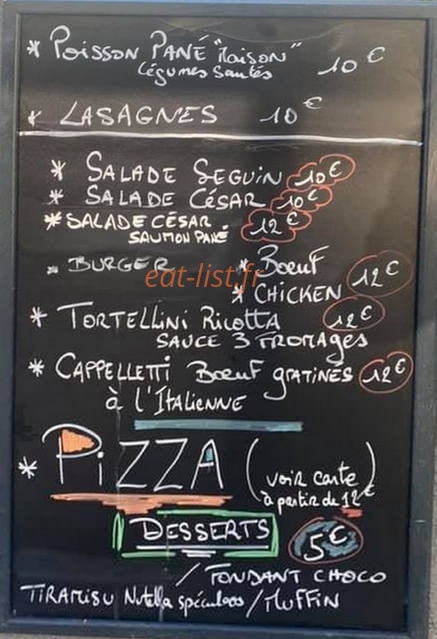 * POISSON PANÉ "MAISON"
Légumes Sautés 10€
* LASAGNES 10€
* SALADE SEGUIN 10€
* SALADE CÉSAR 10€
* SALADE CÉSAR 12€
SAUMON PANÉ
- BURGER * Bœuf
* CHICKEN 12€
eat-list.fr
* TORTELLINI RICOTTA 12€
SAUCE 3 FROMAGES
* CAPPELLETTI Bœuf GRATINÉS 12€
à L'ITALIENNE
* PiZZA (voir carte)
à partir de 12€
DESSERTS 5€
/ FONDANT CHOCO
TIRAMISU Nutella spéculoos / MUFFIN